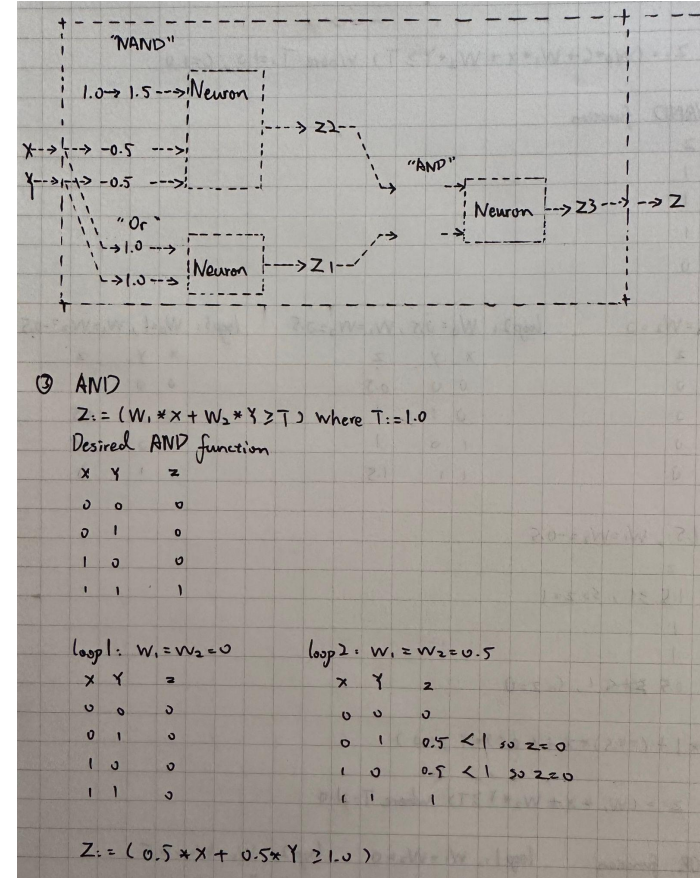 "NAND"
1.0→ 1.5 ---> Neuron
---> Z2--
X---> -0.5 --->
Y---> -0.5 --->
"AND"
Neuron --->Z3---> --> Z
"Or"
→1.0 --->
→1.0 ---> Neuron --->Z1--
③ AND
Z:= (W₁*X + W₂*Y ≥T) where T:=1.0
Desired AND function
X Y Z
0 0 0
0 1 0
1 0 0
1 1 1
loop1: W₁=W₂=0
X Y Z
0 0 0
0 1 0
1 0 0
1 1 0
loop2: W₁=W₂=0.5
X Y Z
0 0 0
0 1 0.5 <1 so z=0
1 0 0.5 <1 so z=0
1 1 1
Z:= (0.5*X + 0.5*Y ≥1.0)